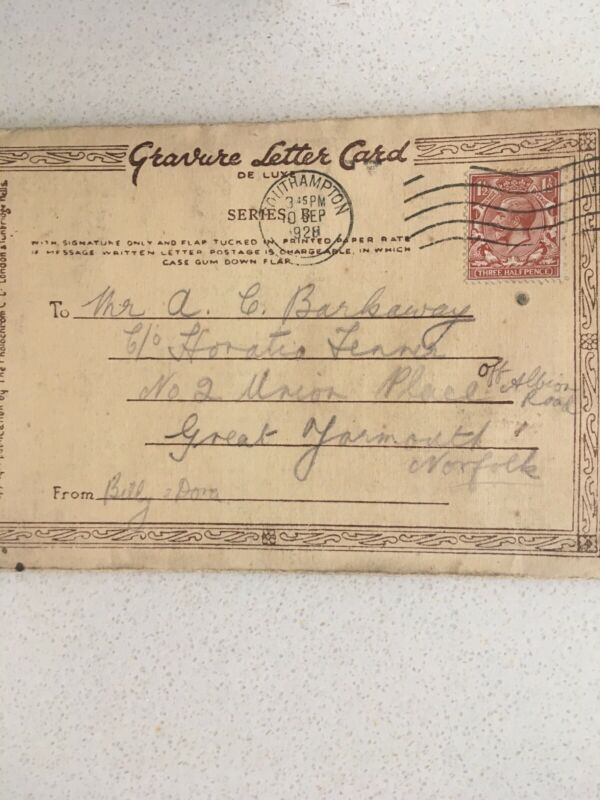 Gravure Letter Card
DE LUXE
SERIES B
WITH SIGNATURE ONLY AND FLAP TUCKED IN PRINTED PAPER RATE
IF MESSAGE WRITTEN LETTER POSTAGE IS CHARGEABLE, IN WHICH
CASE GUM DOWN FLAP.
SOUTHAMPTON
3 45 PM
10 SEP
1928
THREE HALFPENCE
To Mr A. C. Barkaway
C/o Horatio Fenner
No 2 Union Place off Albion
Road
Great Yarmouth
Norfolk
From Billy & Dora
PUBLICATION BY The Photochrom Co Ltd London & Tunbridge Wells.